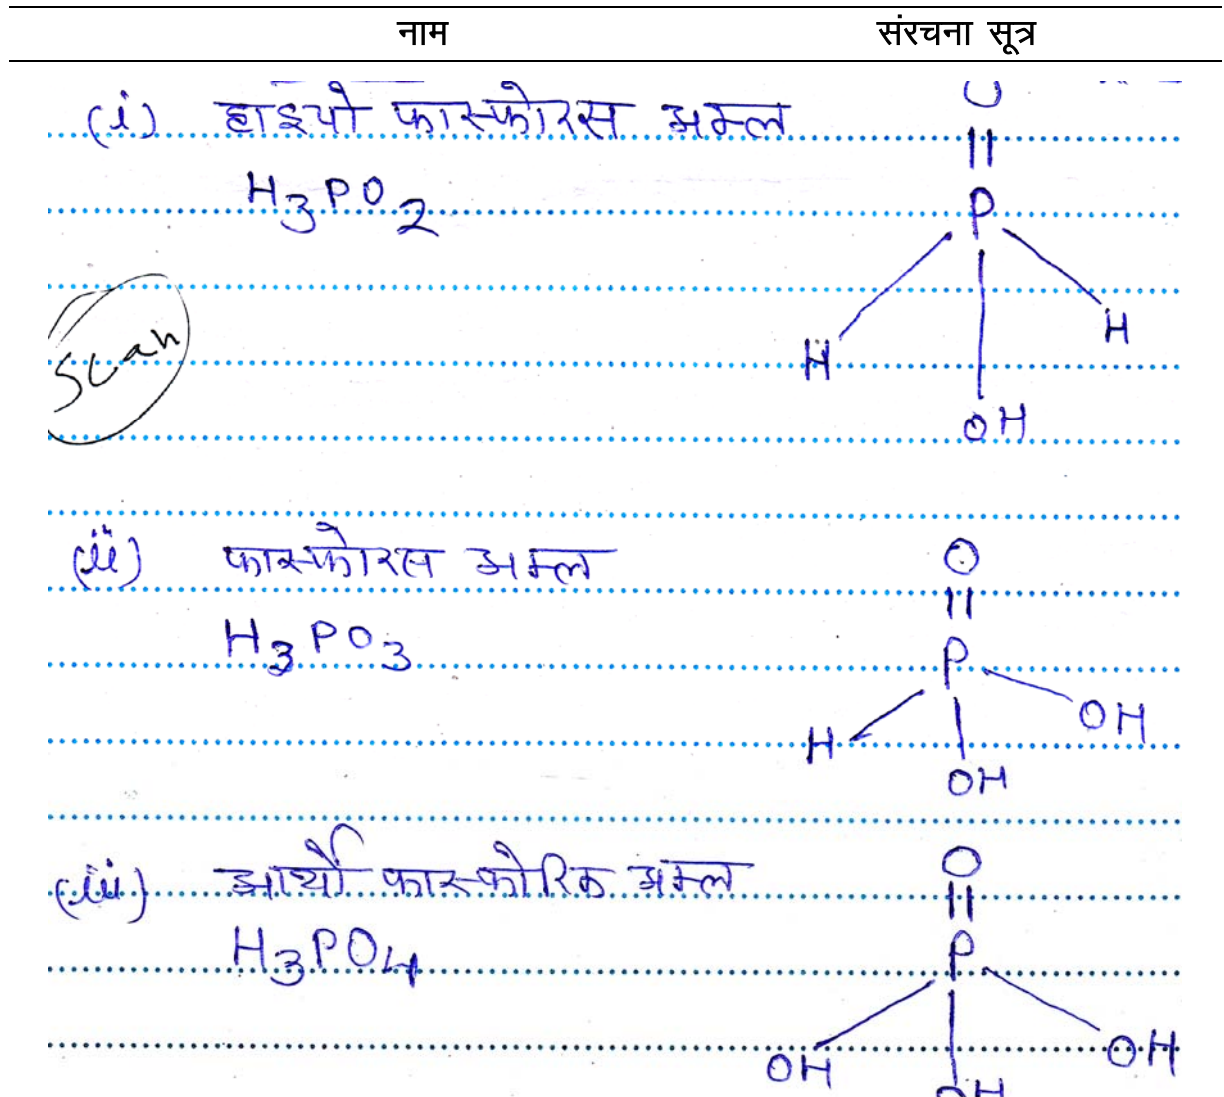 नाम संरचना सूत्र
(i) हाइपो फास्फोरस अम्ल O
||
H3PO2 P
Scan
H H
OH
(ii) फास्फोरस अम्ल O
||
H3PO3 P
OH
H
OH
(iii) आर्थो फास्फोरिक अम्ल O
||
H3PO4 P
OH OH
OH